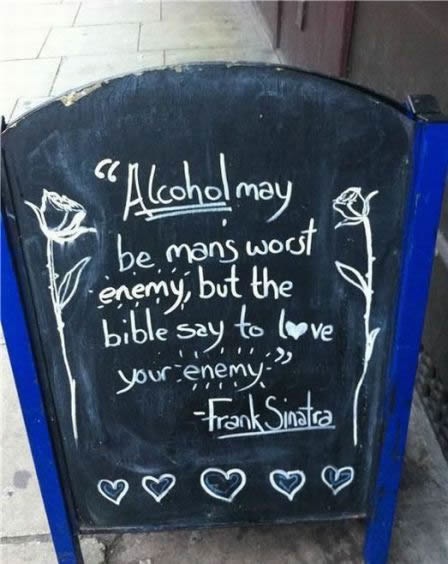 “Alcohol may
be mans worst
enemy, but the
bible say to love
your enemy.”
-Frank Sinatra